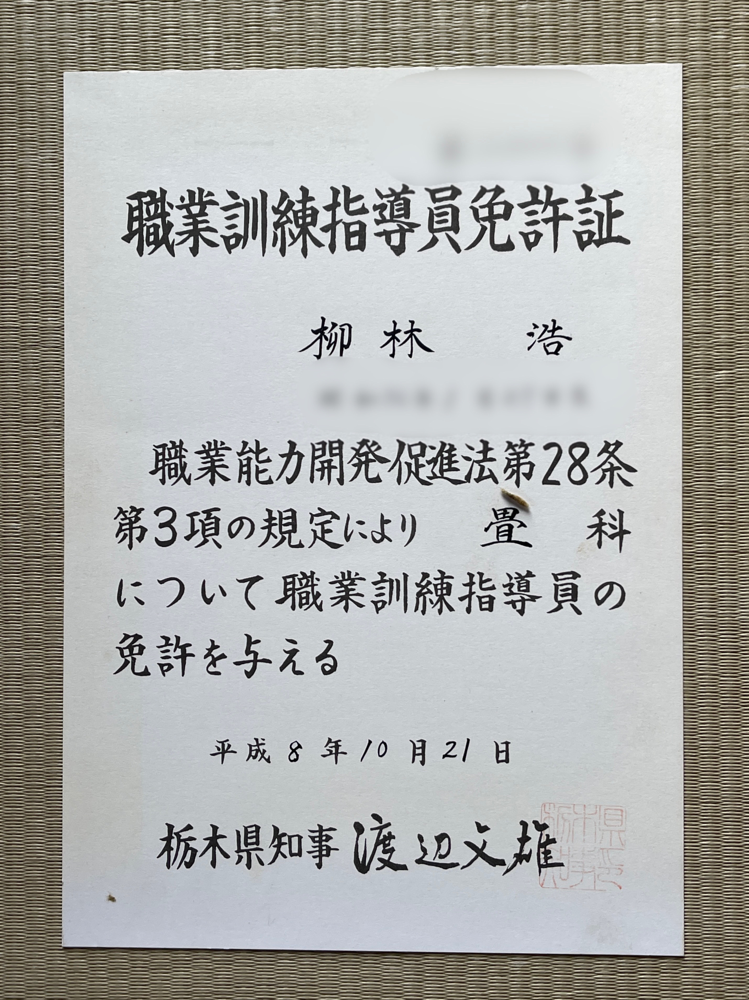 職業訓練指導員免許証
柳林 浩
職業能力開発促進法第28条
第3項の規定により 畳 科
について職業訓練指導員の
免許を与える
平成8年10月21日
栃木県知事 渡辺文雄